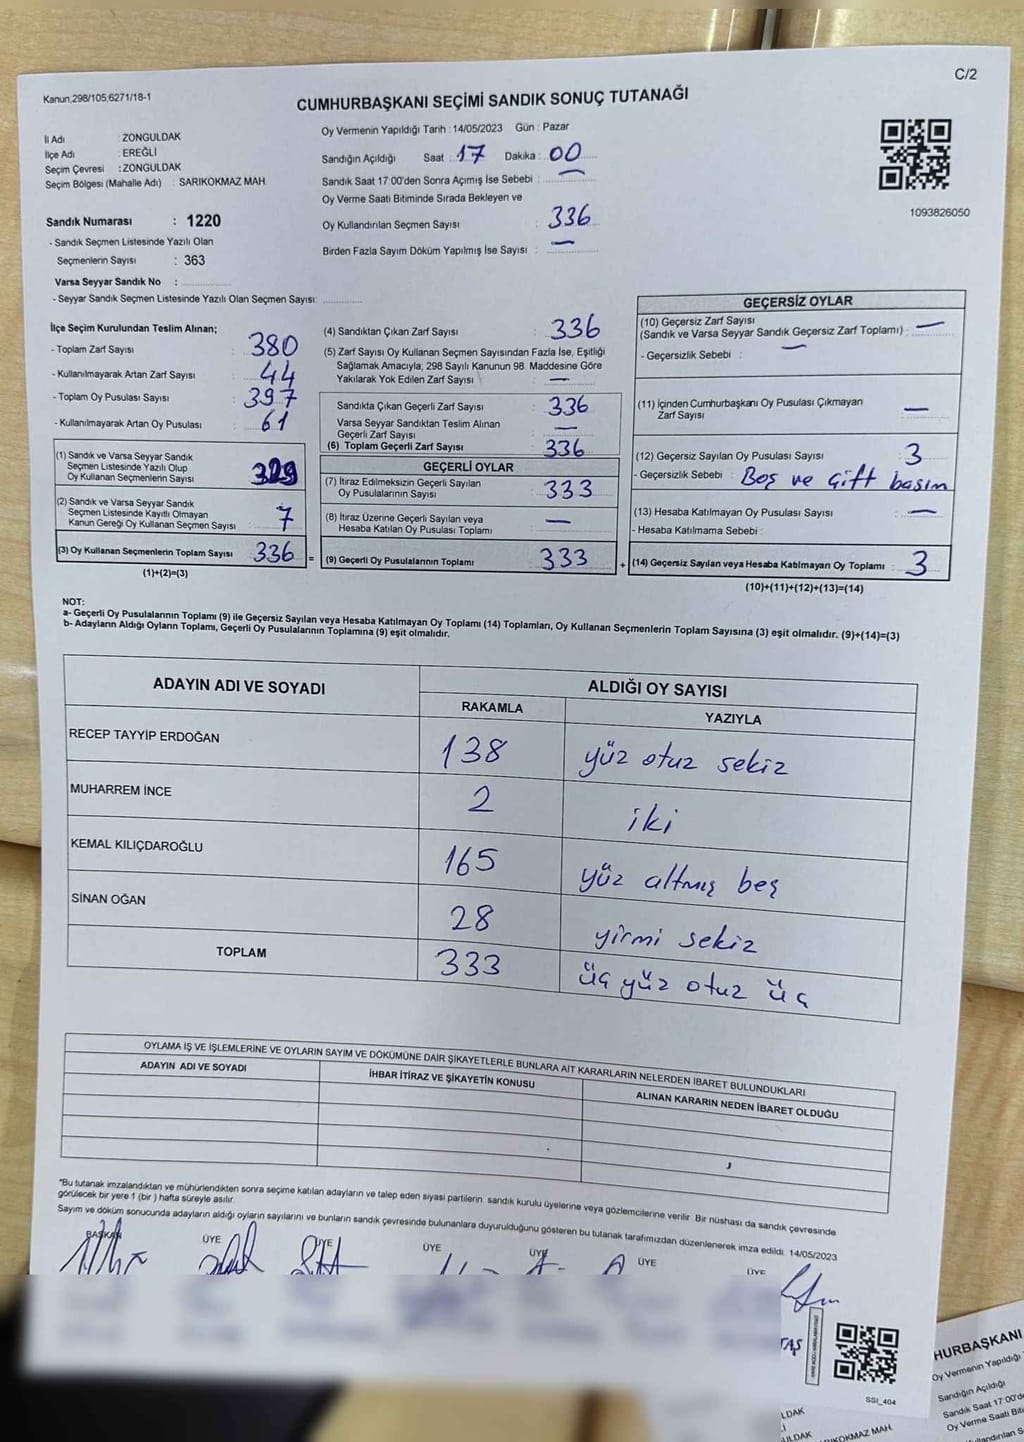 C/2
Kanun,298/105,6271/18-1
CUMHURBAŞKANI SEÇİMİ SANDIK SONUÇ TUTANAĞI
İl Adı : ZONGULDAK
İlçe Adı : EREĞLİ
Seçim Çevresi : ZONGULDAK
Seçim Bölgesi (Mahalle Adı) : SARIKOKMAZ MAH.
Sandık Numarası : 1220
- Sandık Seçmen Listesinde Yazılı Olan
Seçmenlerin Sayısı : 363
Varsa Seyyar Sandık No :
- Seyyar Sandık Seçmen Listesinde Yazılı Olan Seçmen Sayısı:
Oy Vermenin Yapıldığı Tarih : 14/05/2023 Gün : Pazar
Sandığın Açıldığı Saat : 17 Dakika : 00
Sandık Saat 17:00'den Sonra Açımış İse Sebebi : —
Oy Verme Saati Bitiminde Sırada Bekleyen ve
Oy Kullandırılan Seçmen Sayısı : 336
Birden Fazla Sayım Döküm Yapılmış İse Sayısı : —
1093826050
İlçe Seçim Kurulundan Teslim Alınan;
- Toplam Zarf Sayısı : 380
- Kullanılmayarak Artan Zarf Sayısı : 44
- Toplam Oy Pusulası Sayısı : 397
- Kullanılmayarak Artan Oy Pusulası : 61
(1) Sandık ve Varsa Seyyar Sandık
Seçmen Listesinde Yazılı Olup
Oy Kullanan Seçmenlerin Sayısı : 329
(2) Sandık ve Varsa Seyyar Sandık
Seçmen Listesinde Kayıtlı Olmayan
Kanun Gereği Oy Kullanan Seçmen Sayısı : 7
(3) Oy Kullanan Seçmenlerin Toplam Sayısı : 336 =
(1)+(2)=(3)
(4) Sandıktan Çıkan Zarf Sayısı : 336
(5) Zarf Sayısı Oy Kullanan Seçmen Sayısından Fazla İse, Eşitliği
Sağlamak Amacıyla; 298 Sayılı Kanunun 98. Maddesine Göre
Yakılarak Yok Edilen Zarf Sayısı : —
Sandıkta Çıkan Geçerli Zarf Sayısı : 336
Varsa Seyyar Sandıktan Teslim Alınan
Geçerli Zarf Sayısı : —
(6) Toplam Geçerli Zarf Sayısı : 336
GEÇERLİ OYLAR
(7) İtiraz Edilmeksizin Geçerli Sayılan
Oy Pusulalarının Sayısı : 333
(8) İtiraz Üzerine Geçerli Sayılan veya
Hesaba Katılan Oy Pusulası Toplamı : —
(9) Geçerli Oy Pusulalarının Toplamı : 333 +
GEÇERSİZ OYLAR
(10) Geçersiz Zarf Sayısı
(Sandık ve Varsa Seyyar Sandık Geçersiz Zarf Toplamı) : —
- Geçersizlik Sebebi : —
(11) İçinden Cumhurbaşkanı Oy Pusulası Çıkmayan
Zarf Sayısı : —
(12) Geçersiz Sayılan Oy Pusulası Sayısı : 3
- Geçersizlik Sebebi : Boş ve Çift basım
(13) Hesaba Katılmayan Oy Pusulası Sayısı : —
- Hesaba Katılmama Sebebi :
(14) Geçersiz Sayılan veya Hesaba Katılmayan Oy Toplamı : 3
(10)+(11)+(12)+(13)=(14)
NOT:
a- Geçerli Oy Pusulalarının Toplamı (9) ile Geçersiz Sayılan veya Hesaba Katılmayan Oy Toplamı (14) Toplamları, Oy Kullanan Seçmenlerin Toplam Sayısına (3) eşit olmalıdır. (9)+(14)=(3)
b- Adayların Aldığı Oyların Toplamı, Geçerli Oy Pusulalarının Toplamına (9) eşit olmalıdır.
ADAYIN ADI VE SOYADI ALDIĞI OY SAYISI
RAKAMLA YAZIYLA
RECEP TAYYİP ERDOĞAN 138 yüz otuz sekiz
MUHARREM İNCE 2 iki
KEMAL KILIÇDAROĞLU 165 yüz altmış beş
SİNAN OĞAN 28 yirmi sekiz
TOPLAM 333 üç yüz otuz üç
OYLAMA İŞ VE İŞLEMLERİNE VE OYLARIN SAYIM VE DÖKÜMÜNE DAİR ŞİKAYETLERLE BUNLARA AİT KARARLARIN NELERDEN İBARET BULUNDUKLARI
ADAYIN ADI VE SOYADI İHBAR İTİRAZ VE ŞİKAYETİN KONUSU ALINAN KARARIN NEDEN İBARET OLDUĞU
*Bu tutanak imzalandıktan ve mühürlendikten sonra seçime katılan adayların ve talep eden siyasi partilerin sandık kurulu üyelerine veya gözlemcilerine verilir. Bir nüshası da sandık çevresinde
görülecek bir yere 1 (bir) hafta süreyle asılır.
Sayım ve döküm sonucunda adayların aldığı oyların sayılarını ve bunların sandık çevresinde bulunanlara duyurulduğunu gösteren bu tutanak tarafımızdan düzenlenerek imza edildi. 14/05/2023
BAŞKAN ÜYE ÜYE ÜYE ÜYE ÜYE ÜYE
TAŞ
SSI_404
HURBAŞKANI
Oy Vermenin Yapıldığı
Sandığın Açıldığı
Sandık Saat 17:00'de
Oy Verme Saati Biti
ULDAK
RIKOKMAZ MAH.